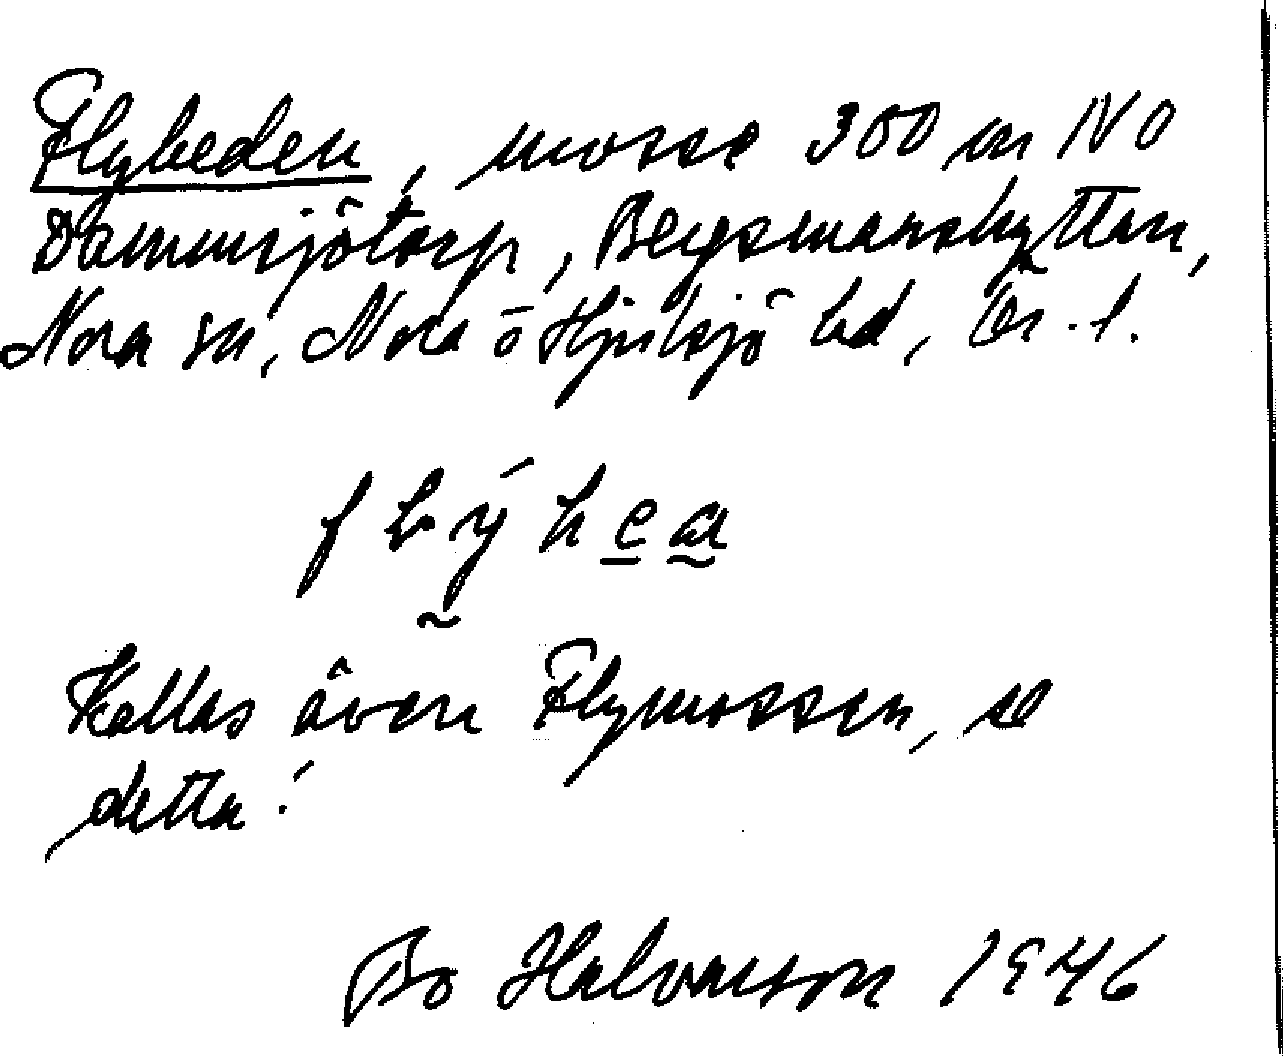 Flyheden, mosse 300 m NO
Dammsjötorp, Bergsmanshyttan,
Nora sn, Nora o Hjulsjö bd, Ör. l.
Kallas även Flymossen, se
detta!
Bo Halvarson 1946